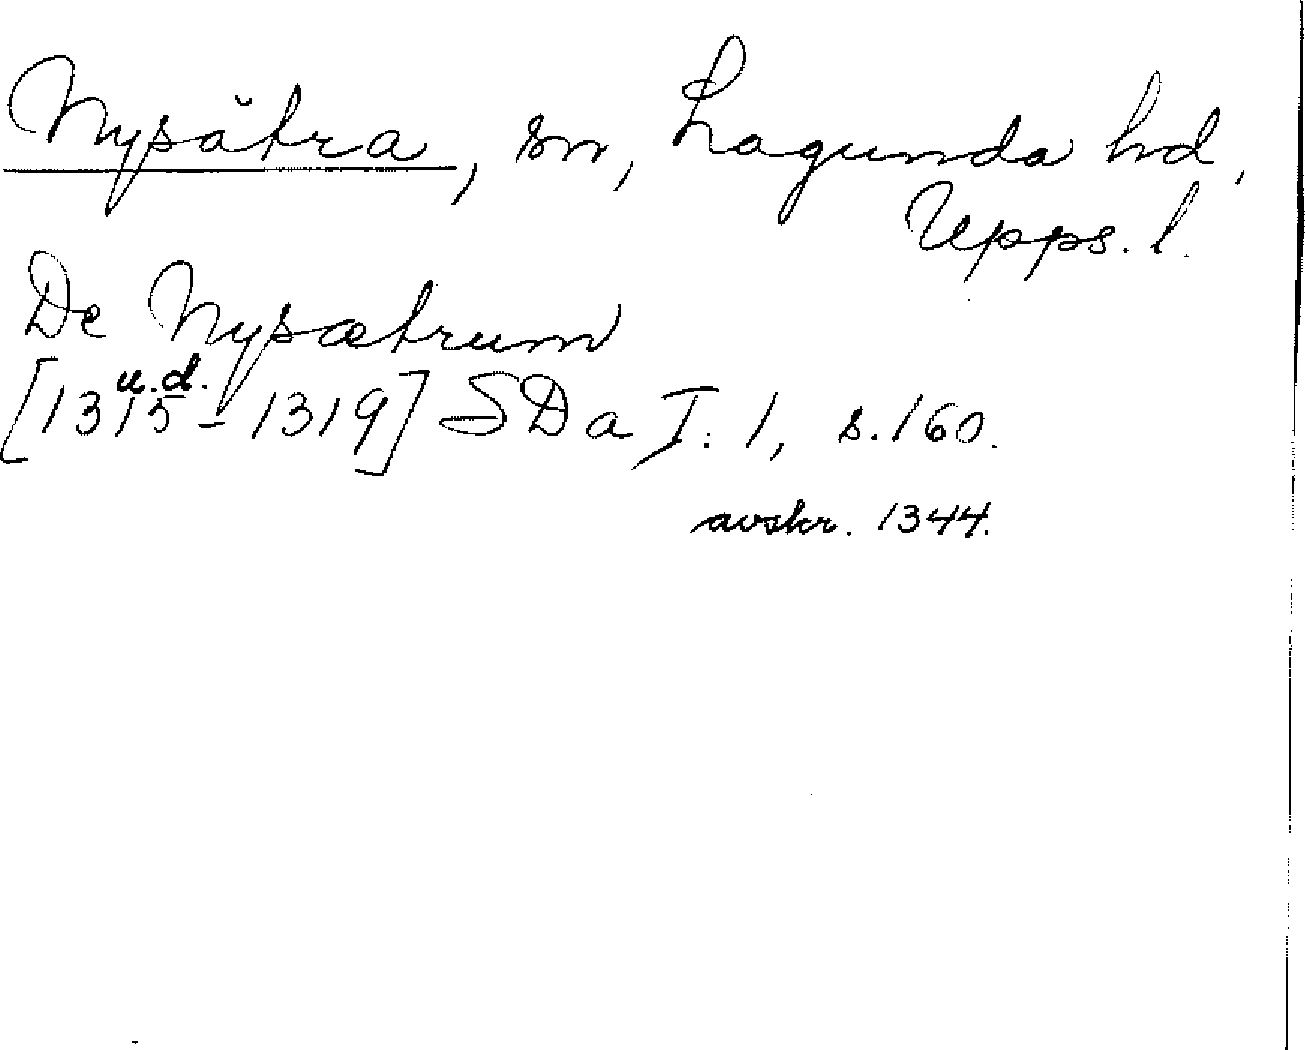 Nysätra, sn, Lagunda hd,
Upps. l.
De Nysætrum
u.d.
[1315-1319] SDa I:1, s.160.
avskr. 1344.